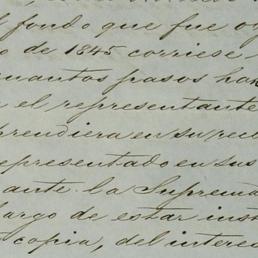 l fondo que fue o
o de 1845 corriese,
cuantos pasos ha
el representante
prendiera en su rec
representado en sus
ante la Suprem
largo de estar inst
copia, del interes